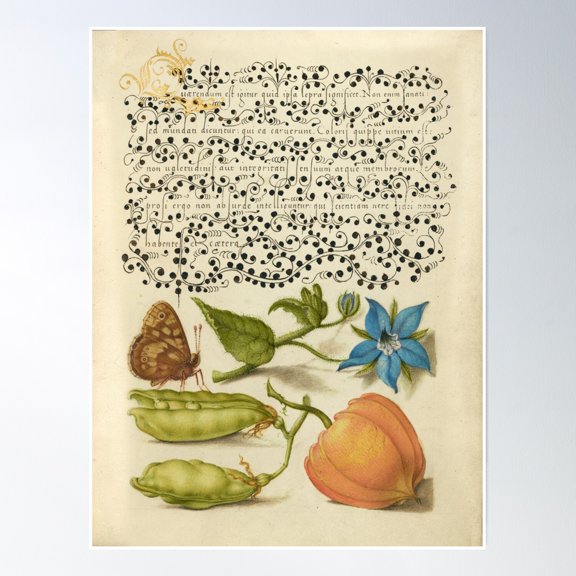 Quærendum est igitur quid ipsa lepra significet. Non enim sanati
sed mundati dicuntur: qui ea caruerunt. Coloris quippe vitium est:
non valetudinis aut integritatis sensuum atque membrorum.
prosi ergo non absurde intelliguntur qui scientiam veræ non
habentes cætera